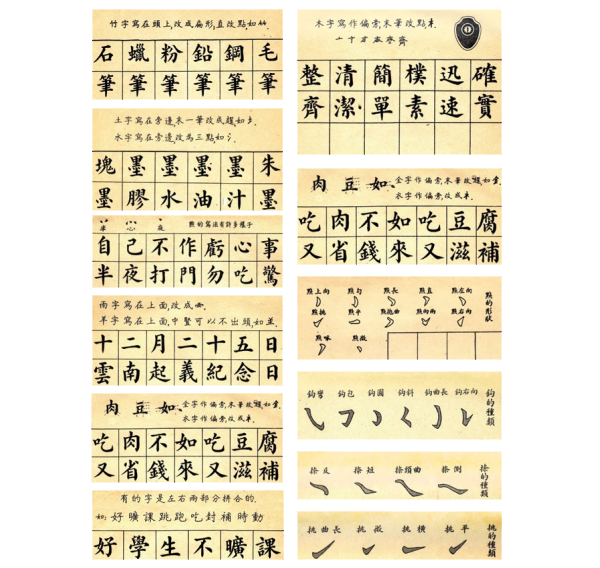 竹字寫在頭上,改成扁形,直改點,如⺮.
石蠟粉鉛鋼毛
筆筆筆筆筆筆
土字寫在旁邊,末一筆改成趯如
水字寫在旁邊,改為三點如氵.
塊墨墨墨墨朱
墨膠水油汁墨
半 心 夜 點的寫法有許多樣子
自己不作虧心事
半夜打門勿吃驚
雨字寫在上面改成⻗.
羊字寫在上面,中豎可以不出頭如
十二月二十五日
雲南起義紀念日
肉 豆 如 金字作偏旁,末筆改趯如釒.
木字作偏旁,改成
吃肉不如吃豆腐
又省錢來又滋補
有的字是左右兩部分拼合的.
如:好曠課跳跑吃封補時動
好學生不曠課
木字寫作偏旁,末筆改點
齊
整清簡樸迅確
齊潔單素速實
肉 豆 如 金字作偏旁,末筆改趯如釒.
木字作偏旁,改成
吃肉不如吃豆腐
又省錢來又滋補
點上向 點勾 點長 點直 點左向 點的形狀
點挑 點平 點抱曲 點向兩 點右向
點啄 點微
鈎彎 鈎包 鈎圓 鈎斜 鈎曲長 鈎右向 鈎的種類
捺反 捺短 捺頭曲 捺側 捺的種類
挑曲長 挑微 挑橫 挑平 挑的種類